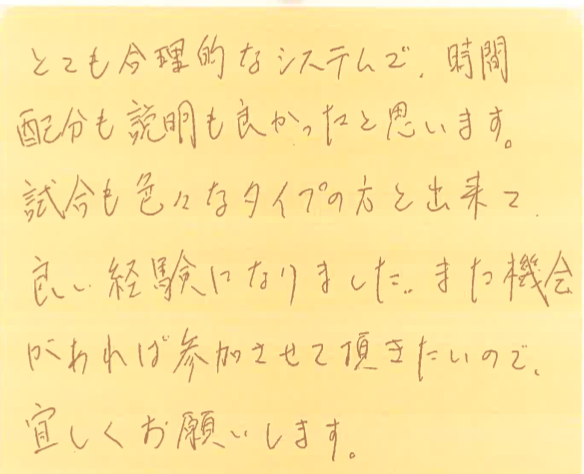 とても合理的なシステムで、時間
配分も説明も良かったと思います。
試合も色々なタイプの方と出来て、
良い経験になりました。また機会
があれば参加させて頂きたいので、
宜しくお願いします。